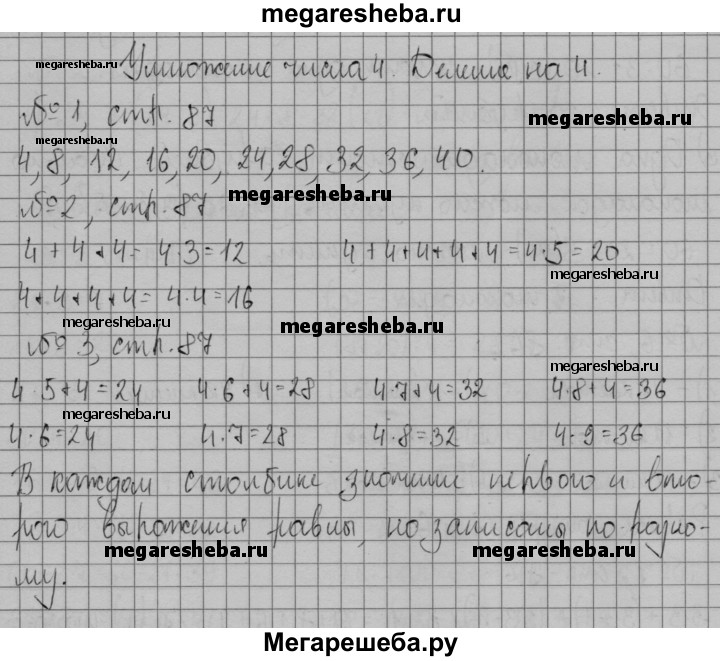 megaresheba.ru
megaresheba.ru
Умножение числа 4. Деление на 4.
№ 1, стр. 87
megaresheba.ru
megaresheba.ru
4, 8, 12, 16, 20, 24, 28, 32, 36, 40.
megaresheba.ru
№ 2, стр. 87
4 + 4 + 4 = 4·3 = 12 4 + 4 + 4 + 4 + 4 = 4·5 = 20
megaresheba.ru
4 + 4 + 4 + 4 = 4·4 = 16
megaresheba.ru
megaresheba.ru
№ 3, стр. 87
megaresheba.ru
4·5+4=24 4·6+4=28 4·7+4=32 4·8+4=36
megaresheba.ru
4·6=24 4·7=28 4·8=32 4·9=36
В каждом столбике значение первого и вто-
рого выражения равны, но записаны по-разно-
megaresheba.ru
megaresheba.ru
му.
Мегарешеба.ру